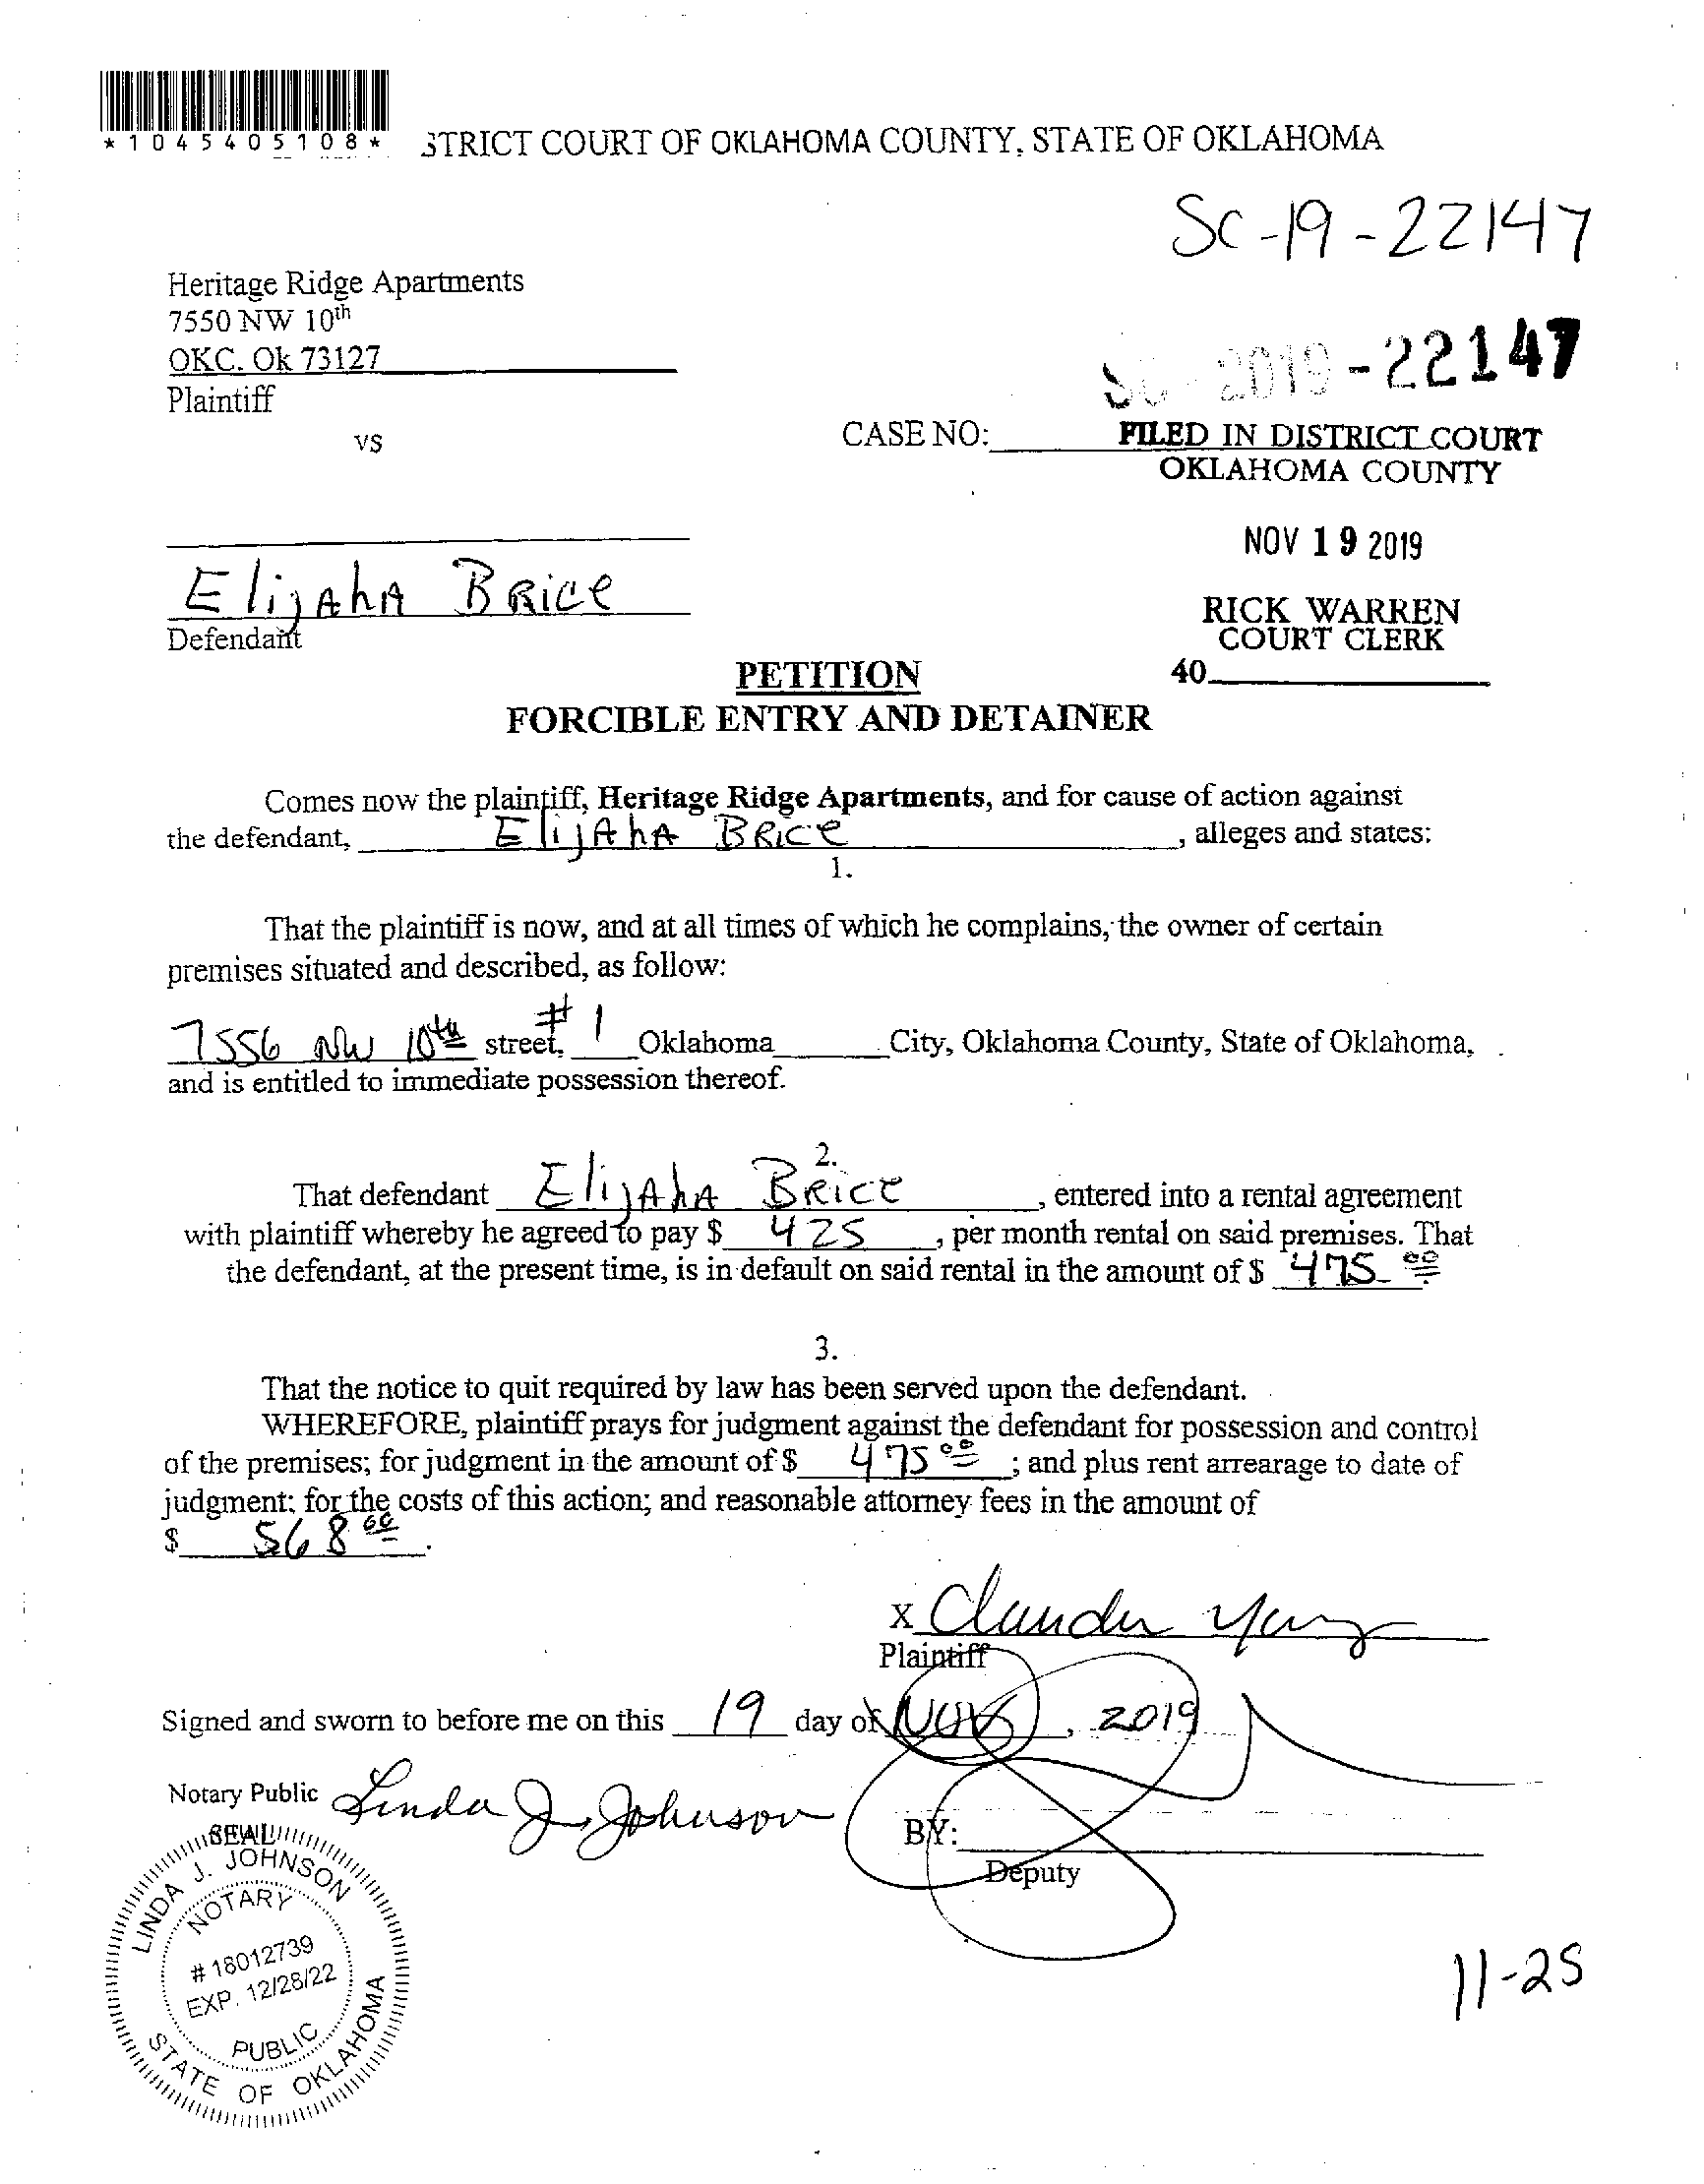 *1045405108*
STRICT COURT OF OKLAHOMA COUNTY, STATE OF OKLAHOMA
SC-19-22147
Heritage Ridge Apartments
7550 NW 10th
OKC. Ok 73127
Plaintiff
SC-2019-22147
vs
CASE NO:
FILED IN DISTRICT COURT
OKLAHOMA COUNTY
NOV 19 2019
ElijAhA BRice
Defendant
RICK WARREN
COURT CLERK
40
PETITION
FORCIBLE ENTRY AND DETAINER
Comes now the plaintiff, Heritage Ridge Apartments, and for cause of action against
the defendant, ElijAhA BRice, alleges and states:
1.
That the plaintiff is now, and at all times of which he complains, the owner of certain
premises situated and described, as follow:
7556 NW 10th street, #1 Oklahoma City, Oklahoma County, State of Oklahoma,
and is entitled to immediate possession thereof.
2.
That defendant ElijAhA BRice, entered into a rental agreement
with plaintiff whereby he agreed to pay $ 425, per month rental on said premises. That
the defendant, at the present time, is in default on said rental in the amount of $ 475 00
3.
That the notice to quit required by law has been served upon the defendant.
WHEREFORE, plaintiff prays for judgment against the defendant for possession and control
of the premises; for judgment in the amount of $ 475 00; and plus rent arrearage to date of
judgment; for the costs of this action; and reasonable attorney fees in the amount of
$ 568 00.
X
Plaintiff
Signed and sworn to before me on this 19 day of Nov, 2019
Notary Public Linda J. Johnson
SEAL
BY:
Deputy
LINDA J. JOHNSON
NOTARY
# 18012739
EXP. 12/28/22
PUBLIC
STATE OF OKLAHOMA
11-25